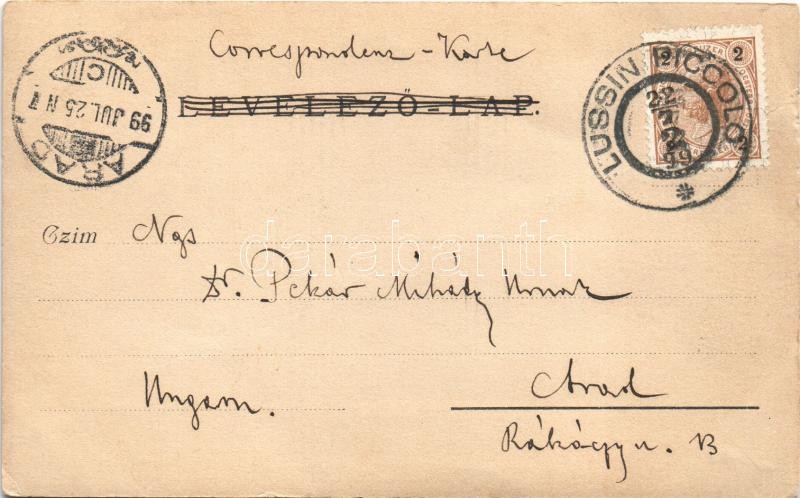 Correspondenz-Karte
LEVELEZŐ-LAP.
ARAD
99 JUL 25 N 7
C
LUSSINPICCOLO
22
7
99
2 KREUZER 2
darabanth
Czim Ngs
Dr. Pekár Mihály Urnak
Ungarn. Arad
Rákóczy u. 13